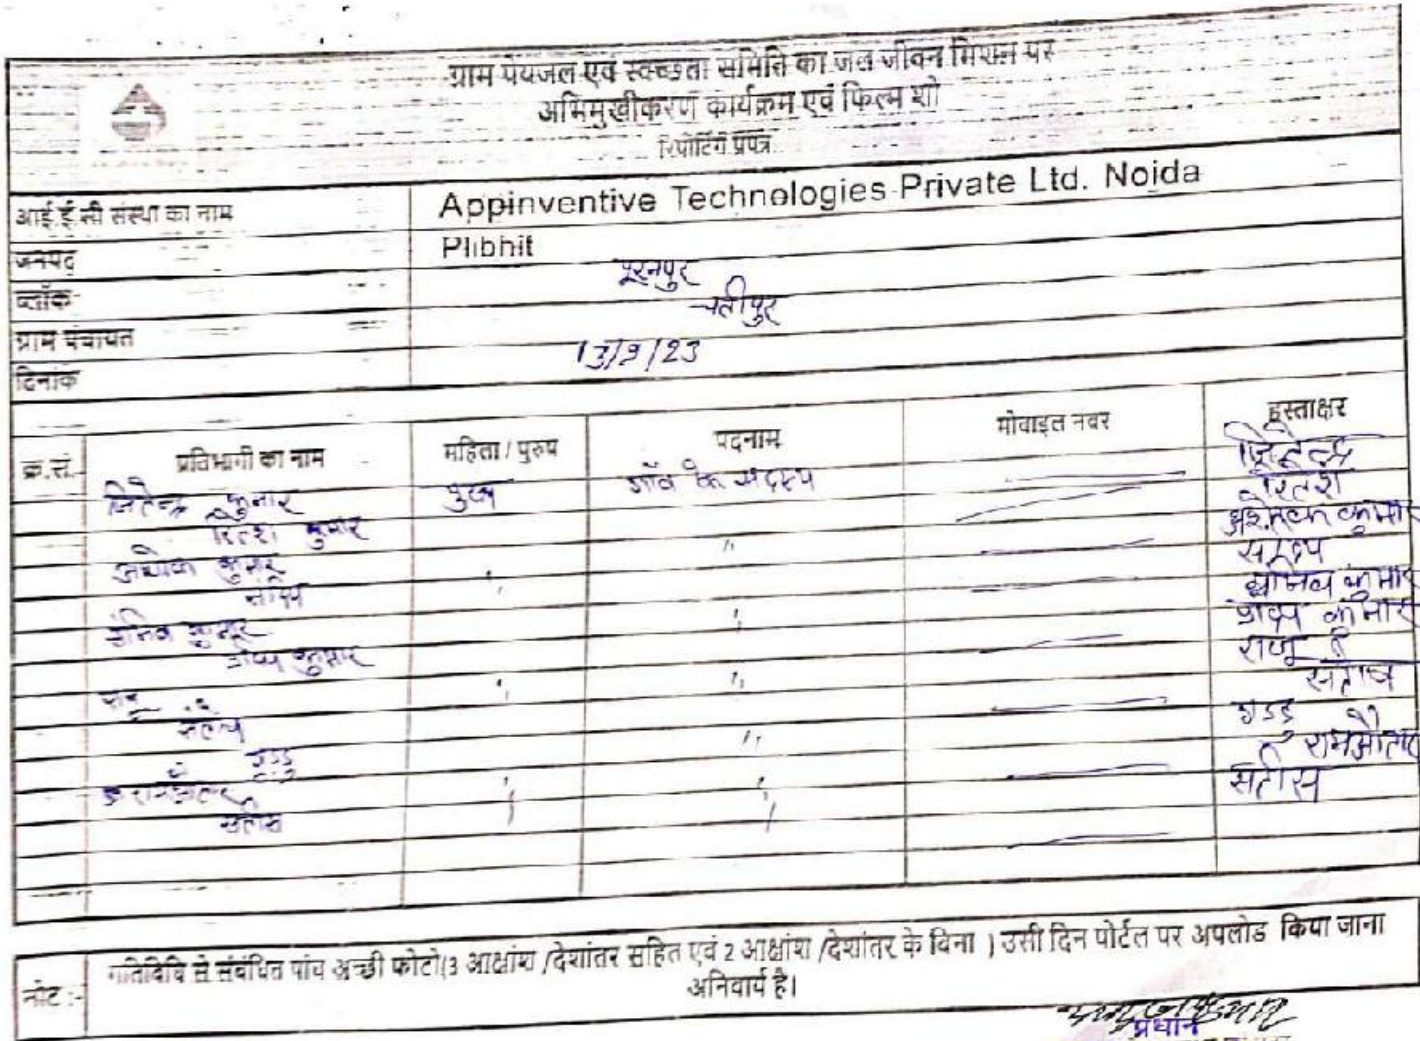 ग्राम पेयजल एवं स्वच्छता समिति का जल जीवन मिशन पर
अभिमुखीकरण कार्यक्रम एवं फिल्म शो
रिपोर्टिंग प्रपत्र
आई.ई.सी संस्था का नाम Appinventive Technologies Private Ltd. Noida
जनपद Plibhit
ब्लॉक पूरनपुर
ग्राम पंचायत
दिनांक 13/9/23
क्र.सं. प्रतिभागी का नाम महिला / पुरुष पदनाम मोबाइल नंबर हस्ताक्षर
जितेन्द्र कुमार पुरुष गाँव के सदस्य जितेन्द्र
रितेश कुमार रितेश
अशोक कुमार " अशोक कुमार
"
कुमार " कुमार
कुमार कुमार
राजू " " राजू
संतोष
गुड्डू " गुड्डू
रामऔतार " " रामऔतार
सतीस सतीस
नोट :- गतिविधि से संबंधित पांच अच्छी फोटो(3 आक्षांश /देशांतर सहित एवं 2 आक्षांश /देशांतर के बिना ) उसी दिन पोर्टल पर अपलोड किया जाना
अनिवार्य है।
प्रधान